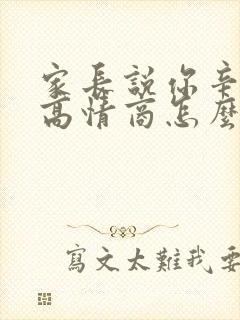 家長說你辛
高情商怎麼
寫文太難我要